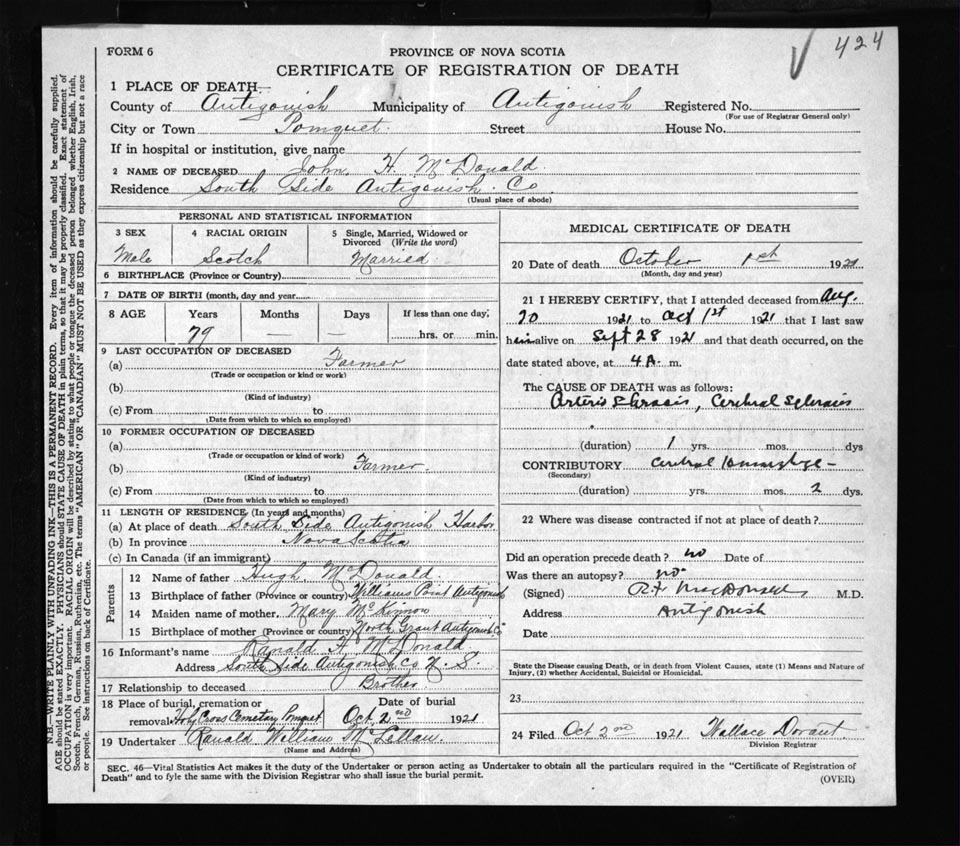 424
FORM 6
PROVINCE OF NOVA SCOTIA
CERTIFICATE OF REGISTRATION OF DEATH
1 PLACE OF DEATH
County of Antigonish Municipality of Antigonish Registered No.
(For use of Registrar General only)
City or Town Pomquet. Street House No.
If in hospital or institution, give name
2 NAME OF DECEASED John H. McDonald
Residence South Side Antigonish Co
(Usual place of abode)
PERSONAL AND STATISTICAL INFORMATION
3 SEX 4 RACIAL ORIGIN 5 Single, Married, Widowed or
Divorced (Write the word)
Male Scotch Married
6 BIRTHPLACE (Province or Country)
7 DATE OF BIRTH (month, day and year
8 AGE Years Months Days If less than one day,
79 — — hrs. or min.
9 LAST OCCUPATION OF DECEASED
(a) Farmer
(Trade or occupation or kind or work)
(b)
(Kind of industry)
(c) From to
(Date from which to which so employed)
10 FORMER OCCUPATION OF DECEASED
(a)
(Trade or occupation or kind of work)
(b) Farmer.
(Kind of industry)
(c) From to
(Date from which to which so employed)
11 LENGTH OF RESIDENCE (In years and months)
(a) At place of death South Side Antigonish Harbor
(b) In province Nova Scotia
(c) In Canada (if an immigrant)
Parents
12 Name of father Hugh McDonald.
13 Birthplace of father (Province or country) Williams Point Antigonish
14 Maiden name of mother. Mary McKinnon
15 Birthplace of mother (Province or country) North Grant Antigonish Co
16 Informant's name Ranald H. McDonald
Address South Side Antigonish Co N. S.
17 Relationship to deceased Brother
18 Place of burial, cremation or Date of burial
removal Holy Cross Cemetary Pomquet Oct. 2nd 1921
19 Undertaker Ranald William McLellan
(Name and Address)
MEDICAL CERTIFICATE OF DEATH
20 Date of death October 1st 1921
(Month, day and year)
21 I HEREBY CERTIFY, that I attended deceased from Aug.
20 1921 to Oct 1st 1921 that I last saw
him alive on Sept 28 1921 and that death occurred, on the
date stated above, at 4 A. m.
The CAUSE OF DEATH was as follows:
Cerebral
(duration) 1 yrs. mos. dys
CONTRIBUTORY Cerebral
(Secondary)
(duration) yrs. mos. 2 dys.
22 Where was disease contracted if not at place of death?
Did an operation precede death? no Date of
Was there an autopsy? no
(Signed) MacDonald M.D.
Address Antigonish
Date
State the Disease causing Death, or in death from Violent Causes, state (1) Means and Nature of
Injury, (2) whether Accidental, Suicidal or Homicidal.
23
24 Filed Oct 2nd 1921 Wallace
Division Registrar
SEC. 46—Vital Statistics Act makes it the duty of the Undertaker or person acting as Undertaker to obtain all the particulars required in the "Certificate of Registration of
Death" and to fyle the same with the Division Registrar who shall issue the burial permit.
(OVER)
N.B.—WRITE PLAINLY WITH UNFADING INK—THIS IS A PERMANENT RECORD. Every item of information should be carefully supplied.
AGE should be stated EXACTLY. PHYSICIANS should STATE CAUSE OF DEATH in plain terms, so that it may be properly classified. Exact statement of
OCCUPATION is very important. RACIAL ORIGIN will be described by stating to what people or tongue the deceased person belonged whether English, Irish,
Scotch, French, German, Russian, Ruthenian, etc. The terms "AMERICAN" OR "CANADIAN" MUST NOT BE USED as they express citizenship but not a race
or people. See instructions on back of Certificate.